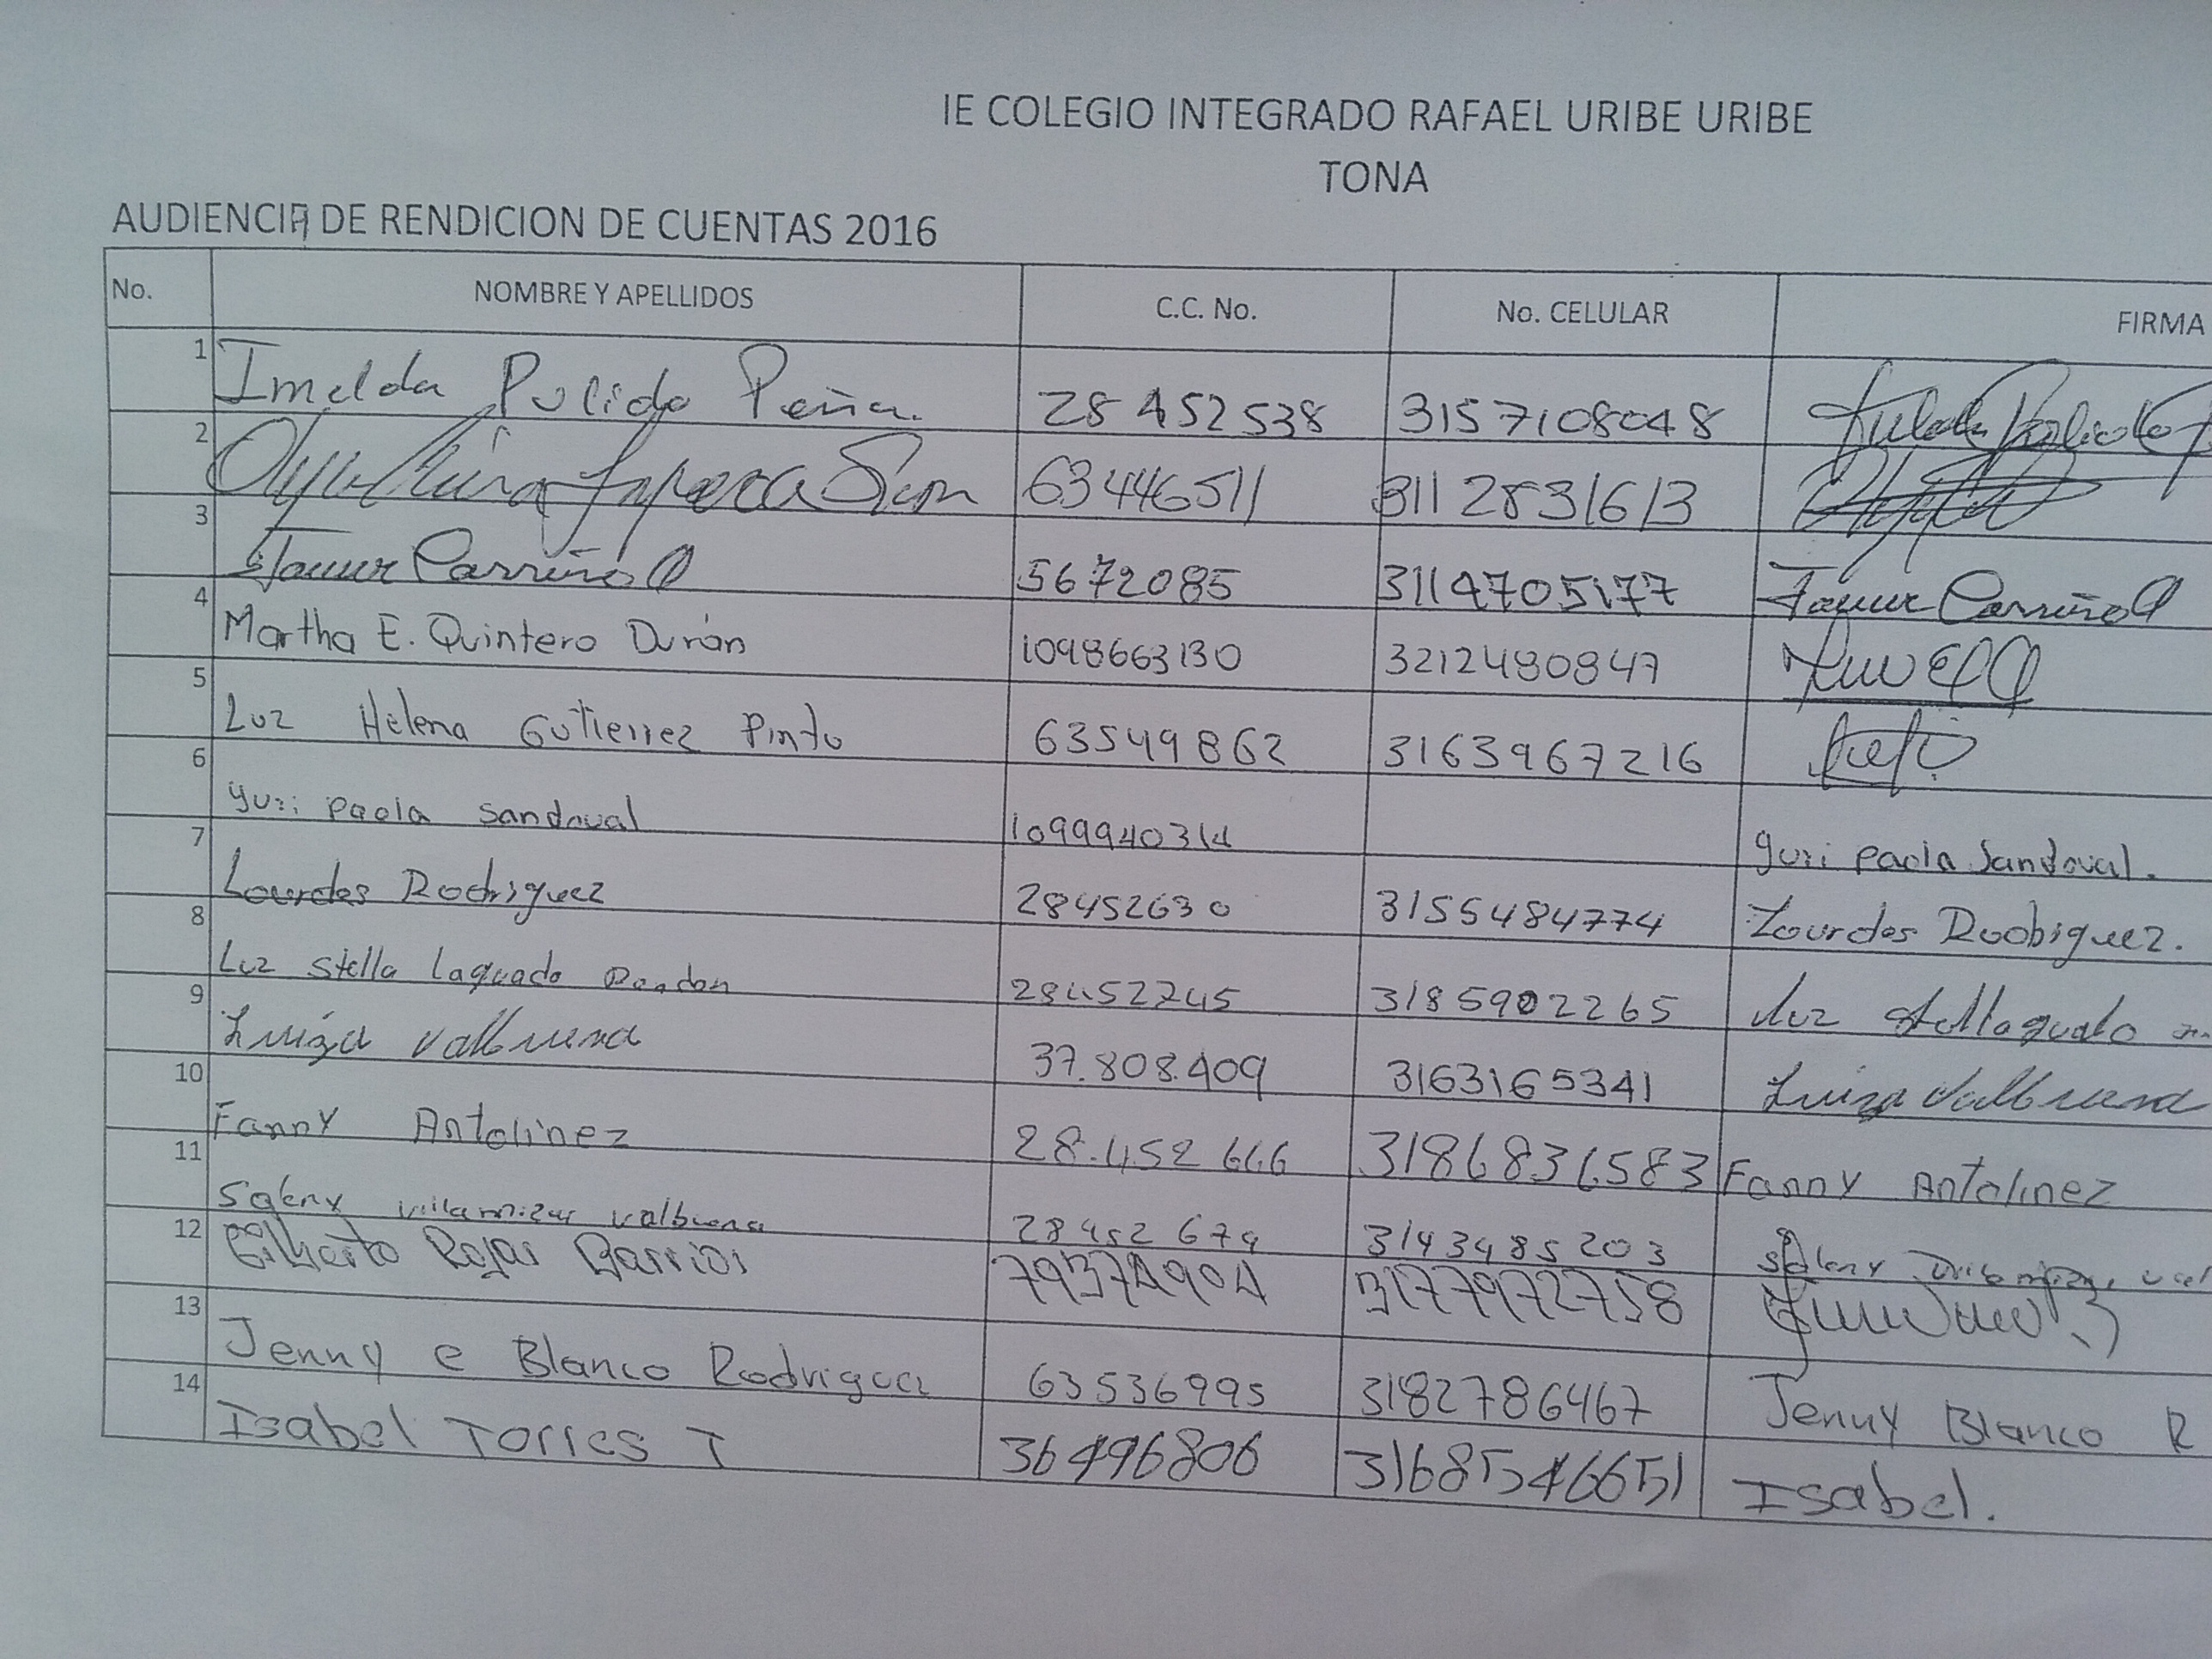 IE COLEGIO INTEGRADO RAFAEL URIBE URIBE
TONA
AUDIENCIA DE RENDICION DE CUENTAS 2016
No. NOMBRE Y APELLIDOS C.C. No. No. CELULAR FIRMA
1 Imelda Pulido Peña. 28 452 538 3157108048
2 63446511 3112831613
3 Carreño 5672085 3114705177 Carreño
4 Martha E. Quintero Durán 1098663130 3212480847
5 Luz Helena Gutierrez Pinto 63549862 3163967216
6 yuri paola sandoval 1099940314 yuri paola Sandoval.
7 Lourdes Rodriguez 28452630 3155484774 Lourdes Rodriguez.
8 Luz stella laguado Rondon 28452745 3185902265 Luz
9 Luiza Valbuena 37.808.409 3163165341 Luiza Valbuena
10 Fanny Antolinez 28.452 666 3186836583 Fanny Antolinez
11 Saleny villamizar valbuena 28452 679 3143485203 Saleny
12 Gilberto Rojas Barrios 79374904 3177972758
13 Jenny e Blanco Rodriguez 63536995 3182786467 Jenny Blanco R
14 Isabel Torres T 36496806 3168546651 Isabel.